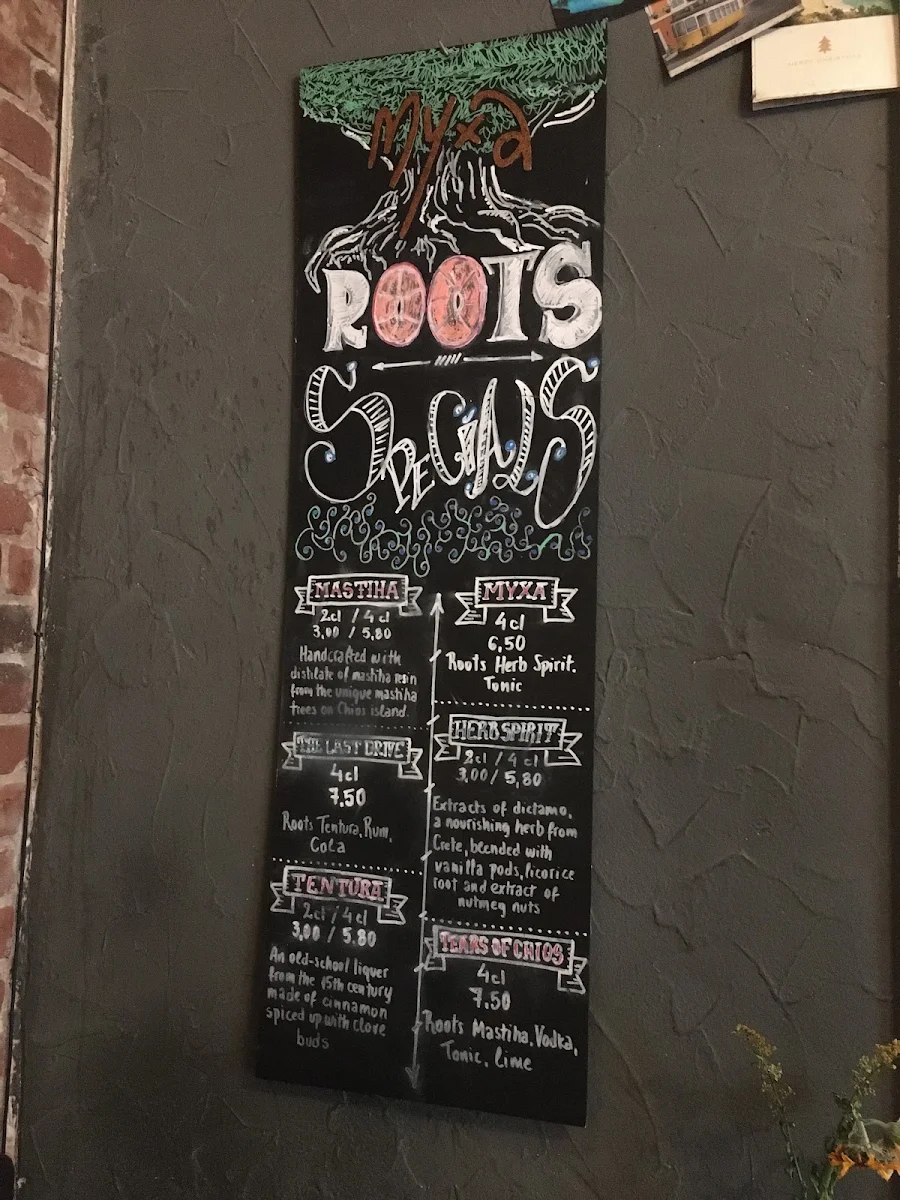 Myxa
ROOTS
SPECIALS
MASTIHA
2cl / 4 cl
3,00 / 5,80
Handcrafted with
distilate of mastiha resin
from the unique mastiha
trees on Chios island.
THE LAST DRIVE
4cl
7.50
Roots Tentura, Rum,
Cola
TENTURA
2cl / 4cl
3,00 / 5,80
An old-school liquer
from the 15th century
made of cinnamon
spiced up with clove
buds
MYXA
4cl
6,50
Roots Herb Spirit.
Tonic
HERB SPIRIT
2cl / 4 cl
3,00 / 5,80
Extracts of dictamo,
a nourishing herb from
Crete, blended with
vanilla pods, licorice
root and extract of
nutmeg nuts
TEARS OF CHIOS
4cl
7.50
Roots Mastiha, Vodka,
Tonic, Lime